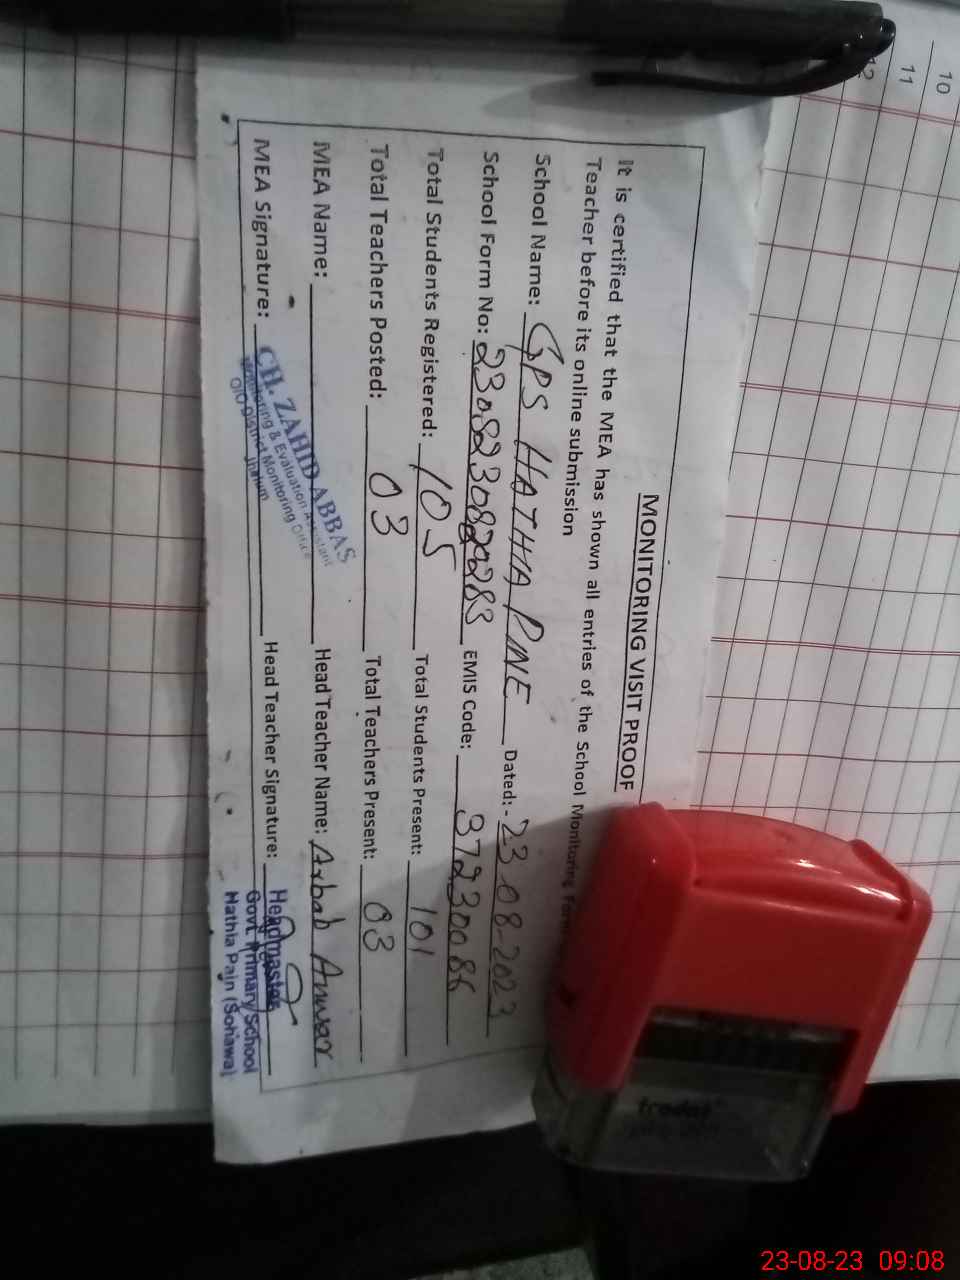 10
11
12
MONITORING VISIT PROOF
It is certified that the MEA has shown all entries of the School Monitoring Form
Teacher before its online submission
School Name: GPS HATHIA PINE Dated:- 23-08-2023
School Form No: EMIS Code: 37230086
Total Students Registered: 105 Total Students Present: 101
Total Teachers Posted: 03 Total Teachers Present: 03
MEA Name: Head Teacher Name: Arbab Anwar
MEA Signature: Head Teacher Signature:
CH. ZAHID ABBAS
Monitoring & Evaluation Assistant
O/O District Monitoring Office
Jhelum
Headmaster
Govt. Primary School
Hathia Pain (Sohawa)
trodat
23-08-23 09:08